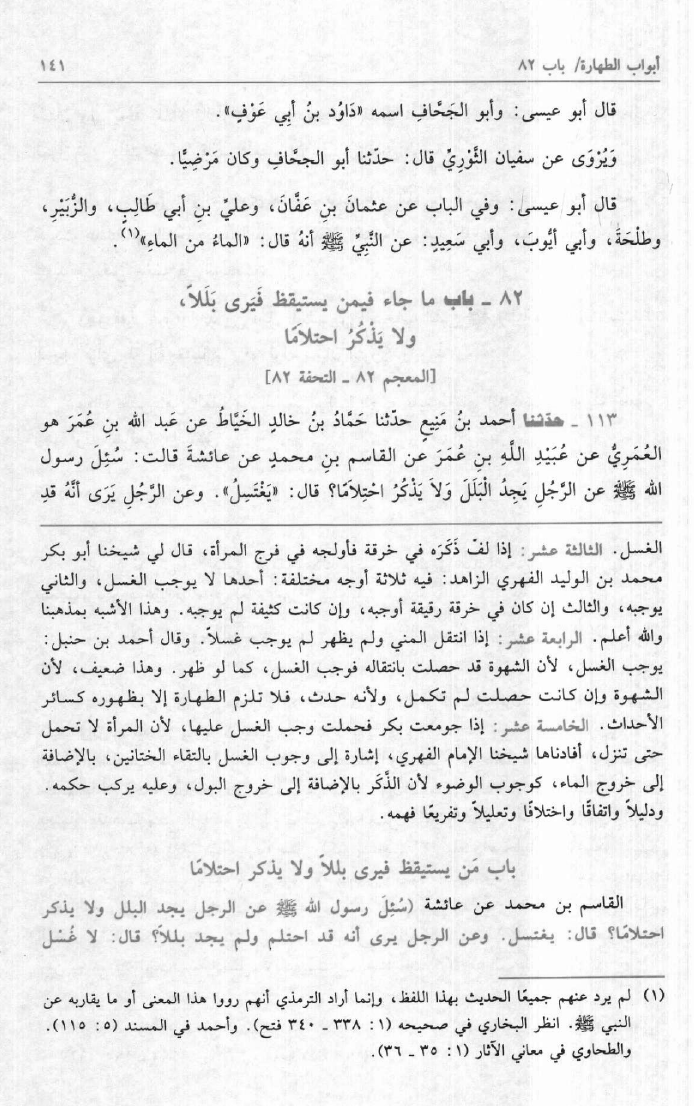 أبواب الطهارة/ باب ٨٢ ١٤١
قال أبو عيسى: وأبو الجَحَّافِ اسمه «دَاوُد بنُ أبِي عَوْفٍ».
وَيُرْوَى عن سفيان الثَّوْرِيِّ قال: حدّثنا أبو الجحَّافِ وكان مَرْضِيًّا.
قال أبو عيسى: وفي الباب عن عثمانَ بنِ عَفَّانَ، وعليِّ بنِ أبي طَالِبٍ، والزُّبَيْرِ،
وطلْحَةَ، وأبي أيُّوبَ، وأبي سَعِيدٍ: عن النَّبِيِّ ﷺ أنهُ قال: «الماءُ من الماءِ»(١).
٨٢ ـ باب ما جاء فيمن يستيقظ فَيَرى بَلَلاً،
ولا يَذْكُرُ احتلاَمًا
[المعجم ٨٢ ـ التحفة ٨٢]
١١٣ ـ حدّثنا أحمد بنُ مَنِيعٍ حدّثنا حَمَّادُ بنُ خالدٍ الخَيَّاطُ عن عَبد الله بنِ عُمَرَ هو
العُمَرِيُّ عن عُبَيْدِ اللَّهِ بنِ عُمَرَ عن القاسم بنِ محمدٍ عن عائشةَ قالت: سُئِلَ رسول
الله ﷺ عن الرَّجُلِ يَجِدُ الْبَلَلَ وَلاَ يَذْكُرُ احْتِلاَمًا؟ قال: «يَغْتَسِلُ». وعن الرَّجُلِ يَرَى أنَّهُ قدِ
الغسل. الثالثة عشر: إذا لفّ ذَكَرَه في خرقة فأولجه في فرج المرأة، قال لي شيخنا أبو بكر
محمد بن الوليد الفهري الزاهد: فيه ثلاثة أوجه مختلفة: أحدها لا يوجب الغسل، والثاني
يوجبه، والثالث إن كان في خرقة رقيقة أوجبه، وإن كانت كثيفة لم يوجبه. وهذا الأشبه بمذهبنا
والله أعلم. الرابعة عشر: إذا انتقل المني ولم يظهر لم يوجب غسلاً. وقال أحمد بن حنبل:
يوجب الغسل، لأن الشهوة قد حصلت بانتقاله فوجب الغسل، كما لو ظهر. وهذا ضعيف، لأن
الشهوة وإن كانت حصلت لم تكمل، ولأنه حدث، فلا تلزم الطهارة إلا بظهوره كسائر
الأحداث. الخامسة عشر: إذا جومعت بكر فحملت وجب الغسل عليها، لأن المرأة لا تحمل
حتى تنزل، أفادناها شيخنا الإمام الفهري، إشارة إلى وجوب الغسل بالتقاء الختانين، بالإضافة
إلى خروج الماء، كوجوب الوضوء لأن الذَّكَر بالإضافة إلى خروج البول، وعليه يركب حكمه.
ودليلاً واتفاقًا واختلافًا وتعليلاً وتفريعًا فهمه.
باب مَن يستيقظ فيرى بللاً ولا يذكر احتلامًا
القاسم بن محمد عن عائشة (سُئِلَ رسول الله ﷺ عن الرجل يجد البلل ولا يذكر
احتلامًا؟ قال: يغتسل. وعن الرجل يرى أنه قد احتلم ولم يجد بللاً؟ قال: لا غُسْل
(١) لم يرد عنهم جميعًا الحديث بهذا اللفظ، وإنما أراد الترمذي أنهم رووا هذا المعنى أو ما يقاربه عن
النبي ﷺ. انظر البخاري في صحيحه (١: ٣٣٨ ـ ٣٤٠ فتح). وأحمد في المسند (٥: ١١٥).
والطحاوي في معاني الآثار (١: ٣٥ ـ ٣٦).